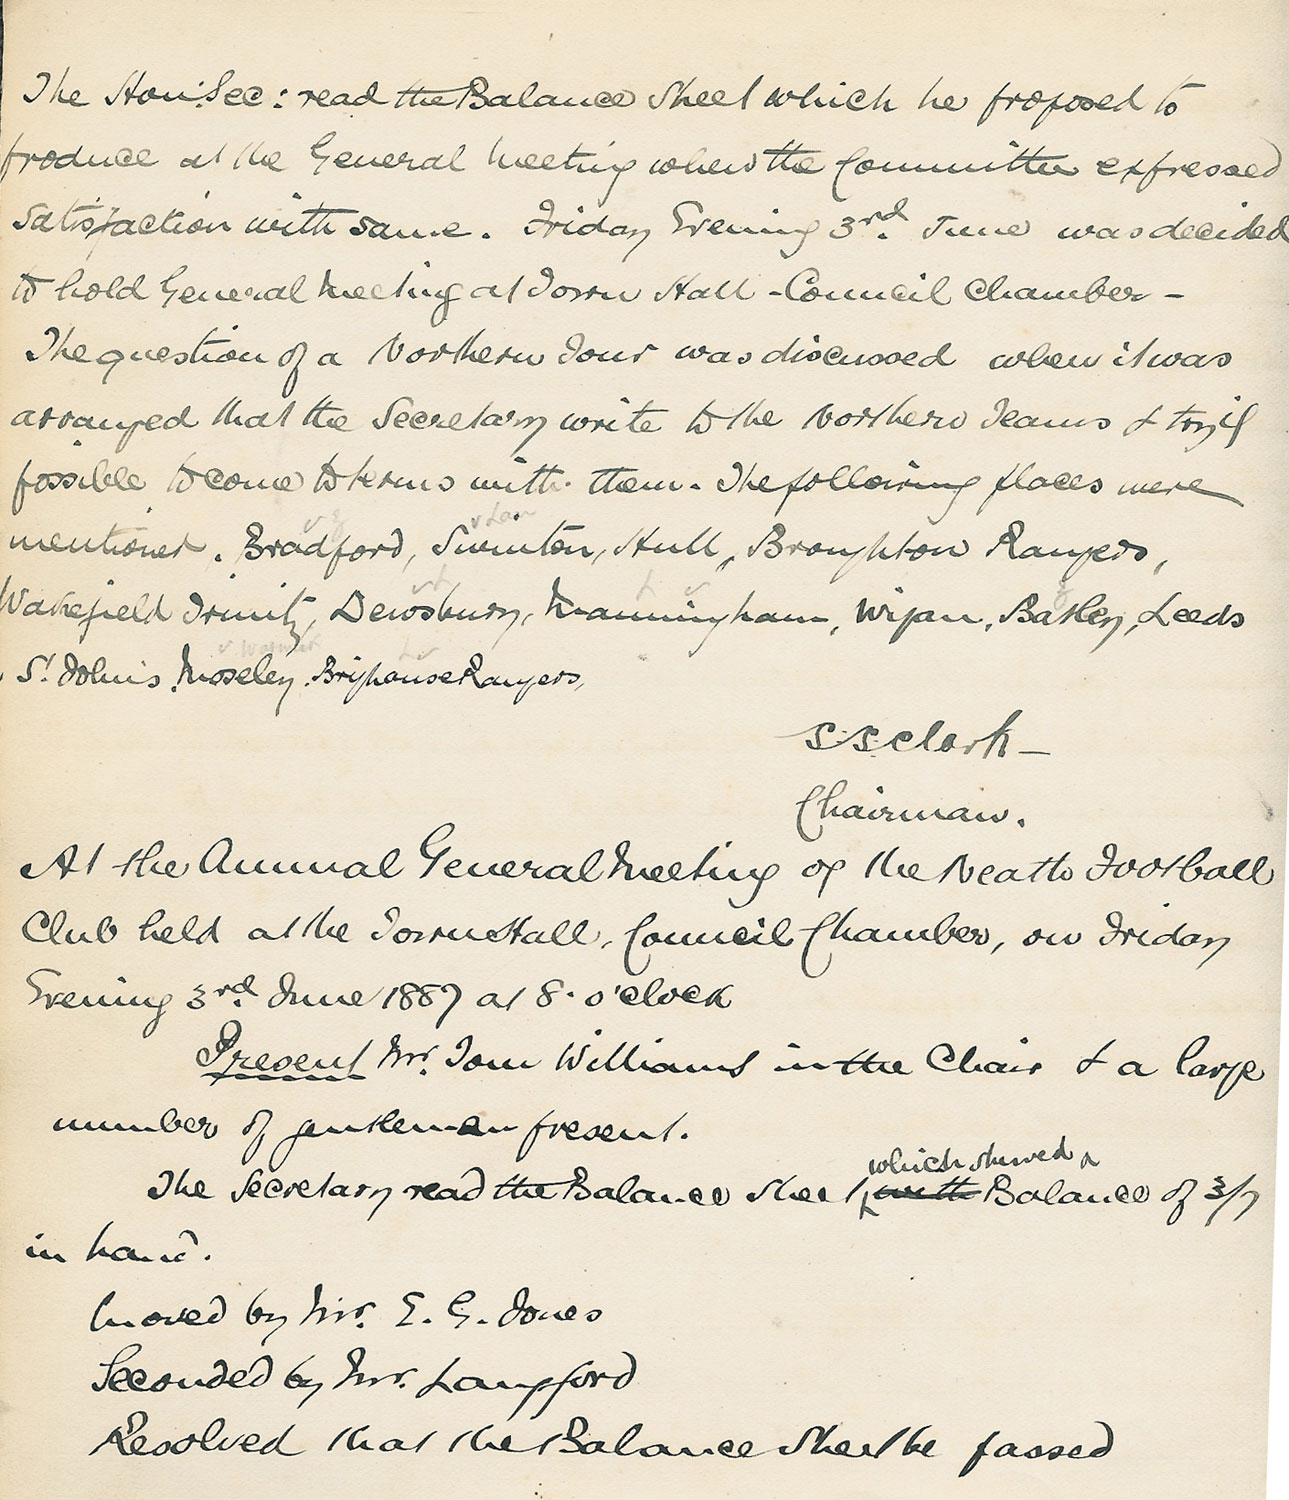 The Hon: Sec: read the Balance Sheet which he proposed to
produce at the General Meeting when the Committee expressed
satisfaction with same. Friday Evening 3rd. June was decided
to hold General Meeting at Town Hall - Council Chamber -
The question of a Northern Tour was discussed when it was
arranged that the Secretary write to the Northern Teams & try if
possible to come to terms with them. The following places were
mentioned. Bradford, Swinton, Hull, Broughton Rangers,
Wakefield Trinity, Dewsbury, Manningham, Wigan, Batley, Leeds
St. John's, Moseley, Brighouse Rangers,
S. S. Clark -
Chairman.
At the Annual General Meeting of the Neath Football
Club held at the Town Hall, Council Chamber, on Friday
Evening 3rd. June 1887 at 8. o'clock
Present Mr. Tom Williams in the Chair & a large
number of gentlemen present.
which shewed a
The Secretary read the Balance Sheet with Balance of 3/7
in hand.
Moved by Mr. E. G. Jones
Seconded by Mr. Langford
Resolved that the Balance Sheet be passed